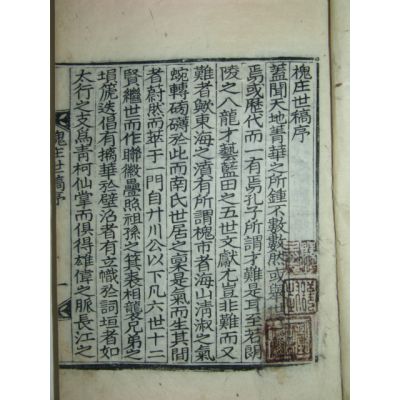 槐庄世稿序
蓋聞天地菁華之所鍾不數數然或
焉或歷代而一有焉孔子所謂才難是耳至若朗
陵之八龍才藝藍田之五世文獻才豈非難而又
難者歟東海之濱有所謂槐市者海山淸淑之氣
蜿轉磅礴於此而南氏世居之稟是氣而生其間
者蔚然而萃于一門自川公以下凡六世十二
賢繼世而作聯徽疊照祖孫之箕裘相襲兄弟之
塤篪迭倡有摛華於壁沼者有立幟於詞垣者如
太行之支爲靑柯仙掌而俱得雄偉之脈長江之
槐庄世稿序
一